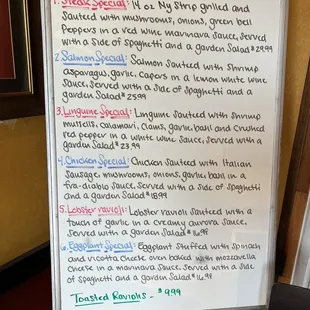 1. Steak Special: 14 oz Ny Strip grilled and
Sauteed with mushrooms, onions, green bell
Peppers in a red wine marinara sauce, Served
with a Side of Spaghetti and a garden Salad $29.99
2. Salmon Special: Salmon Sauteed with Shrimp
asparagus, garlic, capers in a lemon white wine
Sauce, Served with a Side of Spaghetti and a
garden Salad $25.99
3. Linguine Special: Linguine Sauteed with Shrimp
mussells, calamari, Clams, garlic, basil and Crushed
red pepper in a white wine Sauce, Served with a
garden Salad $23.99
4. Chicken Special: Chicken Sauteed with Italian
Sausage, mushrooms, onions, garlic, basil in a
fra-diablo sauce, Served with a Side of Spaghetti
and a garden Salad $18.99
5. Lobster ravioli: Lobster ravioli Sauteed with a
touch of garlic in a creamy aurora Sauce,
Served with a garden Salad $16.99
6. Eggplant Special: Eggplant Stuffed with Spinach
and ricotta Cheese oven baked with mozzarella
Cheese in a marinara Sauce, Served with a Side
of Spaghetti and a garden Salad $16.99
Toasted Raviolis - $9.99